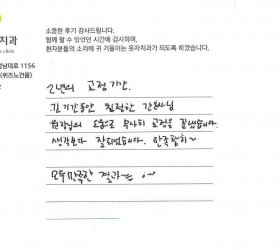 소중한 후기 감사드립니다.
함께 할 수 있었던 시간에 감사하며,
환자분들의 소리에 귀 기울이는 웃자치과가 되도록 하겠습니다.
치과
clinic
남대로 1156
(퀴즈노건물)
2년의 교정기간.
긴 기간동안 친절한 간호사님
원장님의 도움으로 무사히 교정을 끝냈습니다.
생각보다 잘되었습니다. 만족합니다~
모두 만족한 결과~